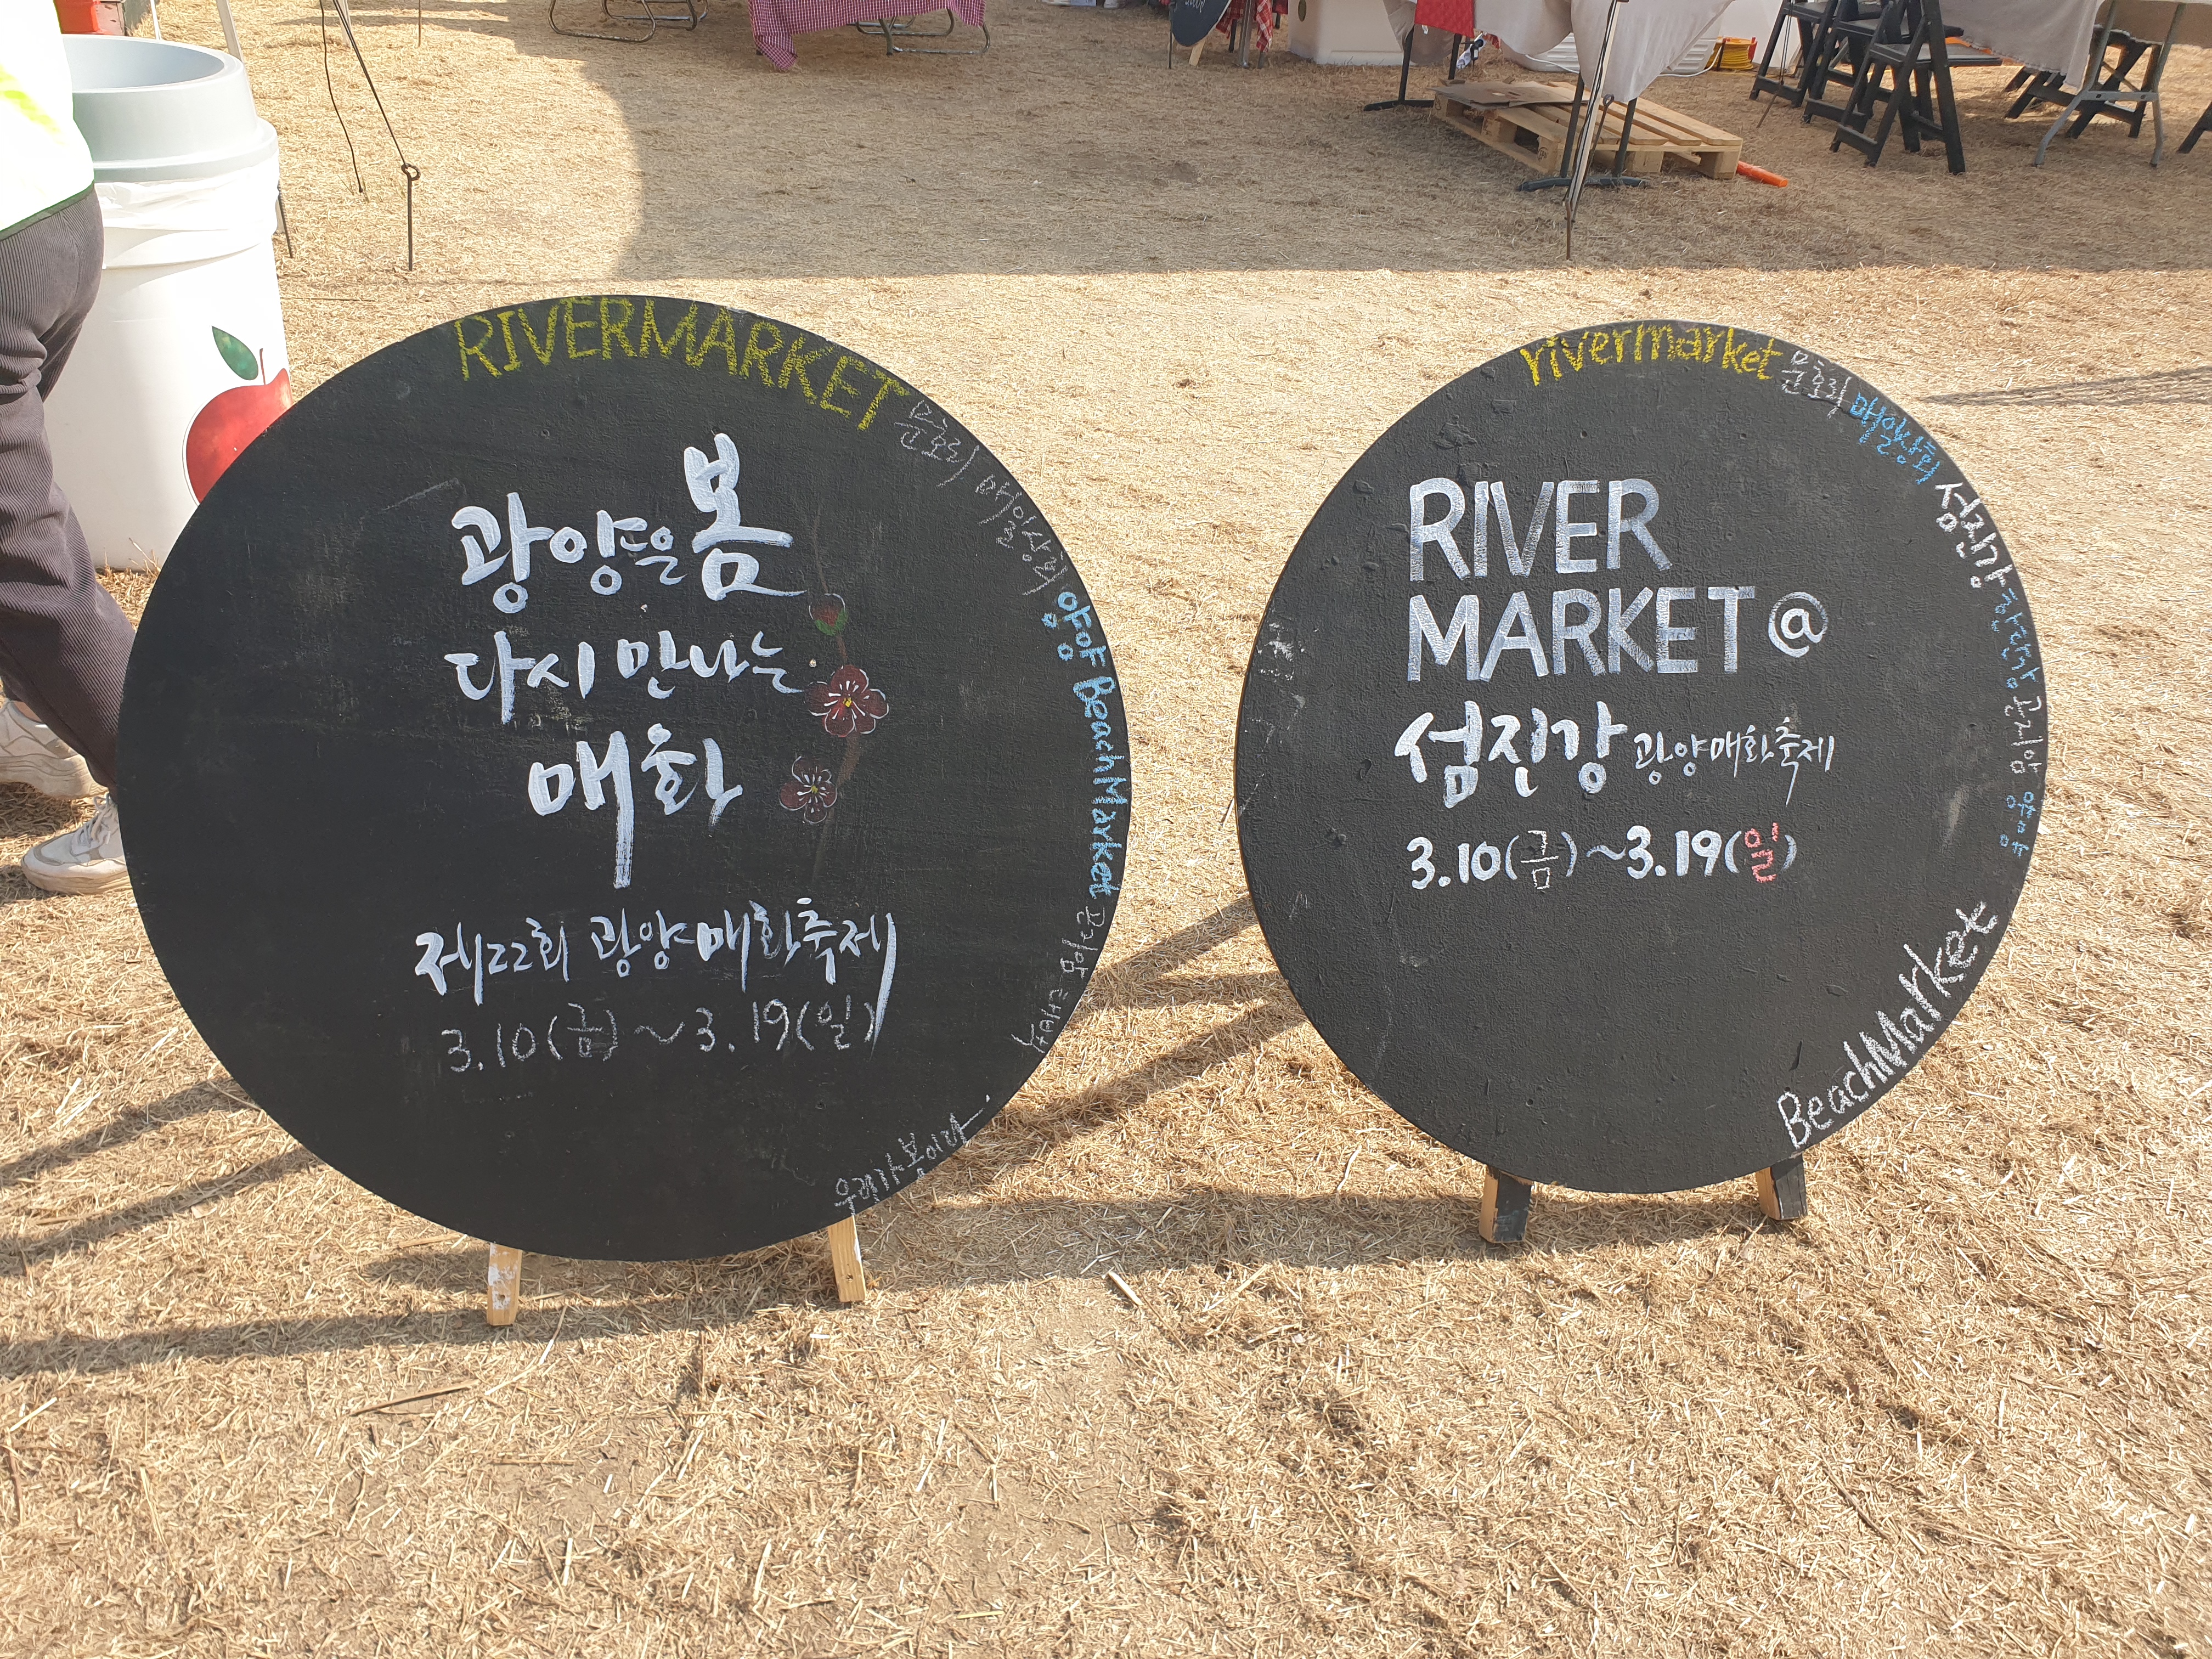 RIVERMARKET 문호리 매일상회 양양 BeachMarket 곤지암
광양은 봄
다시 만나는
매화
제22회 광양매화축제
3.10(금)~3.19(일)
우리가 봄이다
rivermarket 문호리 매일상회 섬진강 곤지암 양양
RIVER
MARKET @
섬진강 광양매화축제
3.10(금)~3.19(일)
BeachMarket